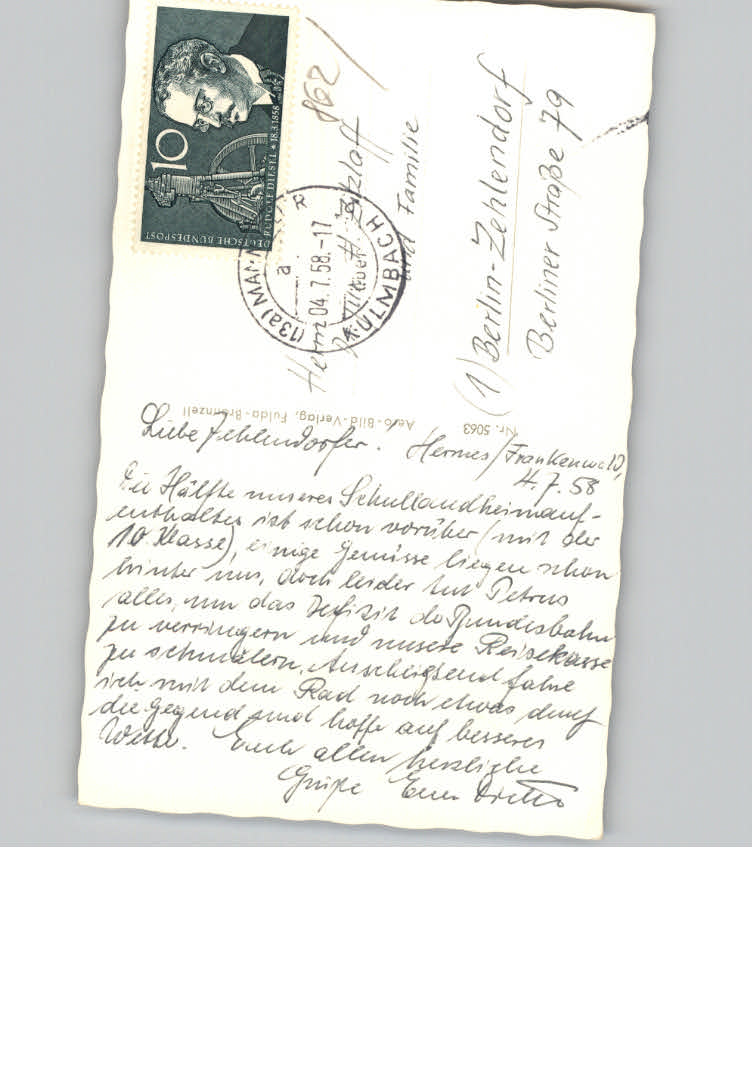 10
DEUTSCHE BUNDESPOST
RUDOLF DIESEL * 18.3.1858
862
(13a) MANN
KULMBACH
04.7.58.-17
a
Herrn
und Familie
(1) Berlin-Zehlendorf
Berliner Straße 79
Aero-Bild-Verlag, Fulda-Bronnzell
Nr. 5063
Liebe Zehlendorfer. Hermes/Frankenwald,
4.7.58
Die Hälfte unseres Schullandheimauf-
enthaltes ist schon vorüber (mit der
10. Klasse), einige Genüsse liegen schon
hinter uns, doch leider tut Petrus
alles, um das Defizit der Bundesbahn
zu verringern und unsere Reisekasse
zu schmälern. Anschließend fahre
ich mit dem Rad noch etwas durch
die Gegend und hoffe auf besseres
Wetter. Euch allen herzliche
Grüße Euer